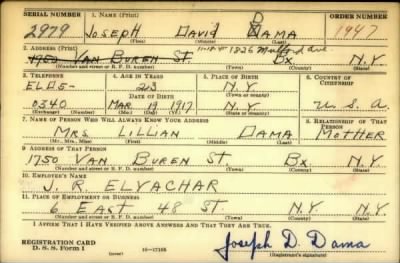 SERIAL NUMBER 1. NAME (Print) ORDER NUMBER
2979 JOSEPH DAVID DAMA 1947
(First) (Middle) (Last)
2. ADDRESS (Print) 1826
1750 VAN BUREN ST. Bx. N.Y.
(Number and street or R. F. D. number) (Town) (County) (State)
3. TELEPHONE 4. AGE IN YEARS 5. PLACE OF BIRTH 6. COUNTRY OF CITIZENSHIP
ELD5- 23 N.Y.
(Town or county)
0340 MAR 19 1917 N.Y. U.S.A.
7. NAME OF PERSON WHO WILL ALWAYS KNOW YOUR ADDRESS 8. RELATIONSHIP OF THAT PERSON
MRS. LILLIAN DAMA MOTHER
(Mr., Mrs., Miss) (First) (Middle) (Last)
9. ADDRESS OF THAT PERSON
1750 VAN BUREN ST. Bx. N.Y.
(Number and street or R. F. D. number) (Town) (County) (State)
10. EMPLOYER'S NAME
J. R. ELYACHAR
11. PLACE OF EMPLOYMENT OR BUSINESS
6 EAST 48 ST. N.Y. N.Y.
(Number and street or R. F. D. number) (Town) (County) (State)
I AFFIRM THAT I HAVE VERIFIED ABOVE ANSWERS AND THAT THEY ARE TRUE.
REGISTRATION CARD
D. S. S. Form 1 16—17105 Joseph D. Dama
(Registrant's signature)